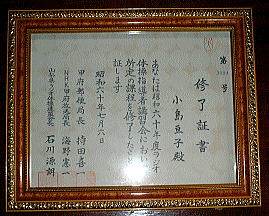 第
号
修了証書
小島亘子殿
あなたは昭和六十年度ラジオ
体操指導者講習会におい
て所定の課程を修了したことを
証します
昭和六十年七月六日
甲府郵便局長 持田喜一
NHK甲府放送局長 海野憲一
山梨県ラジオ体操連盟会長 石川源朗